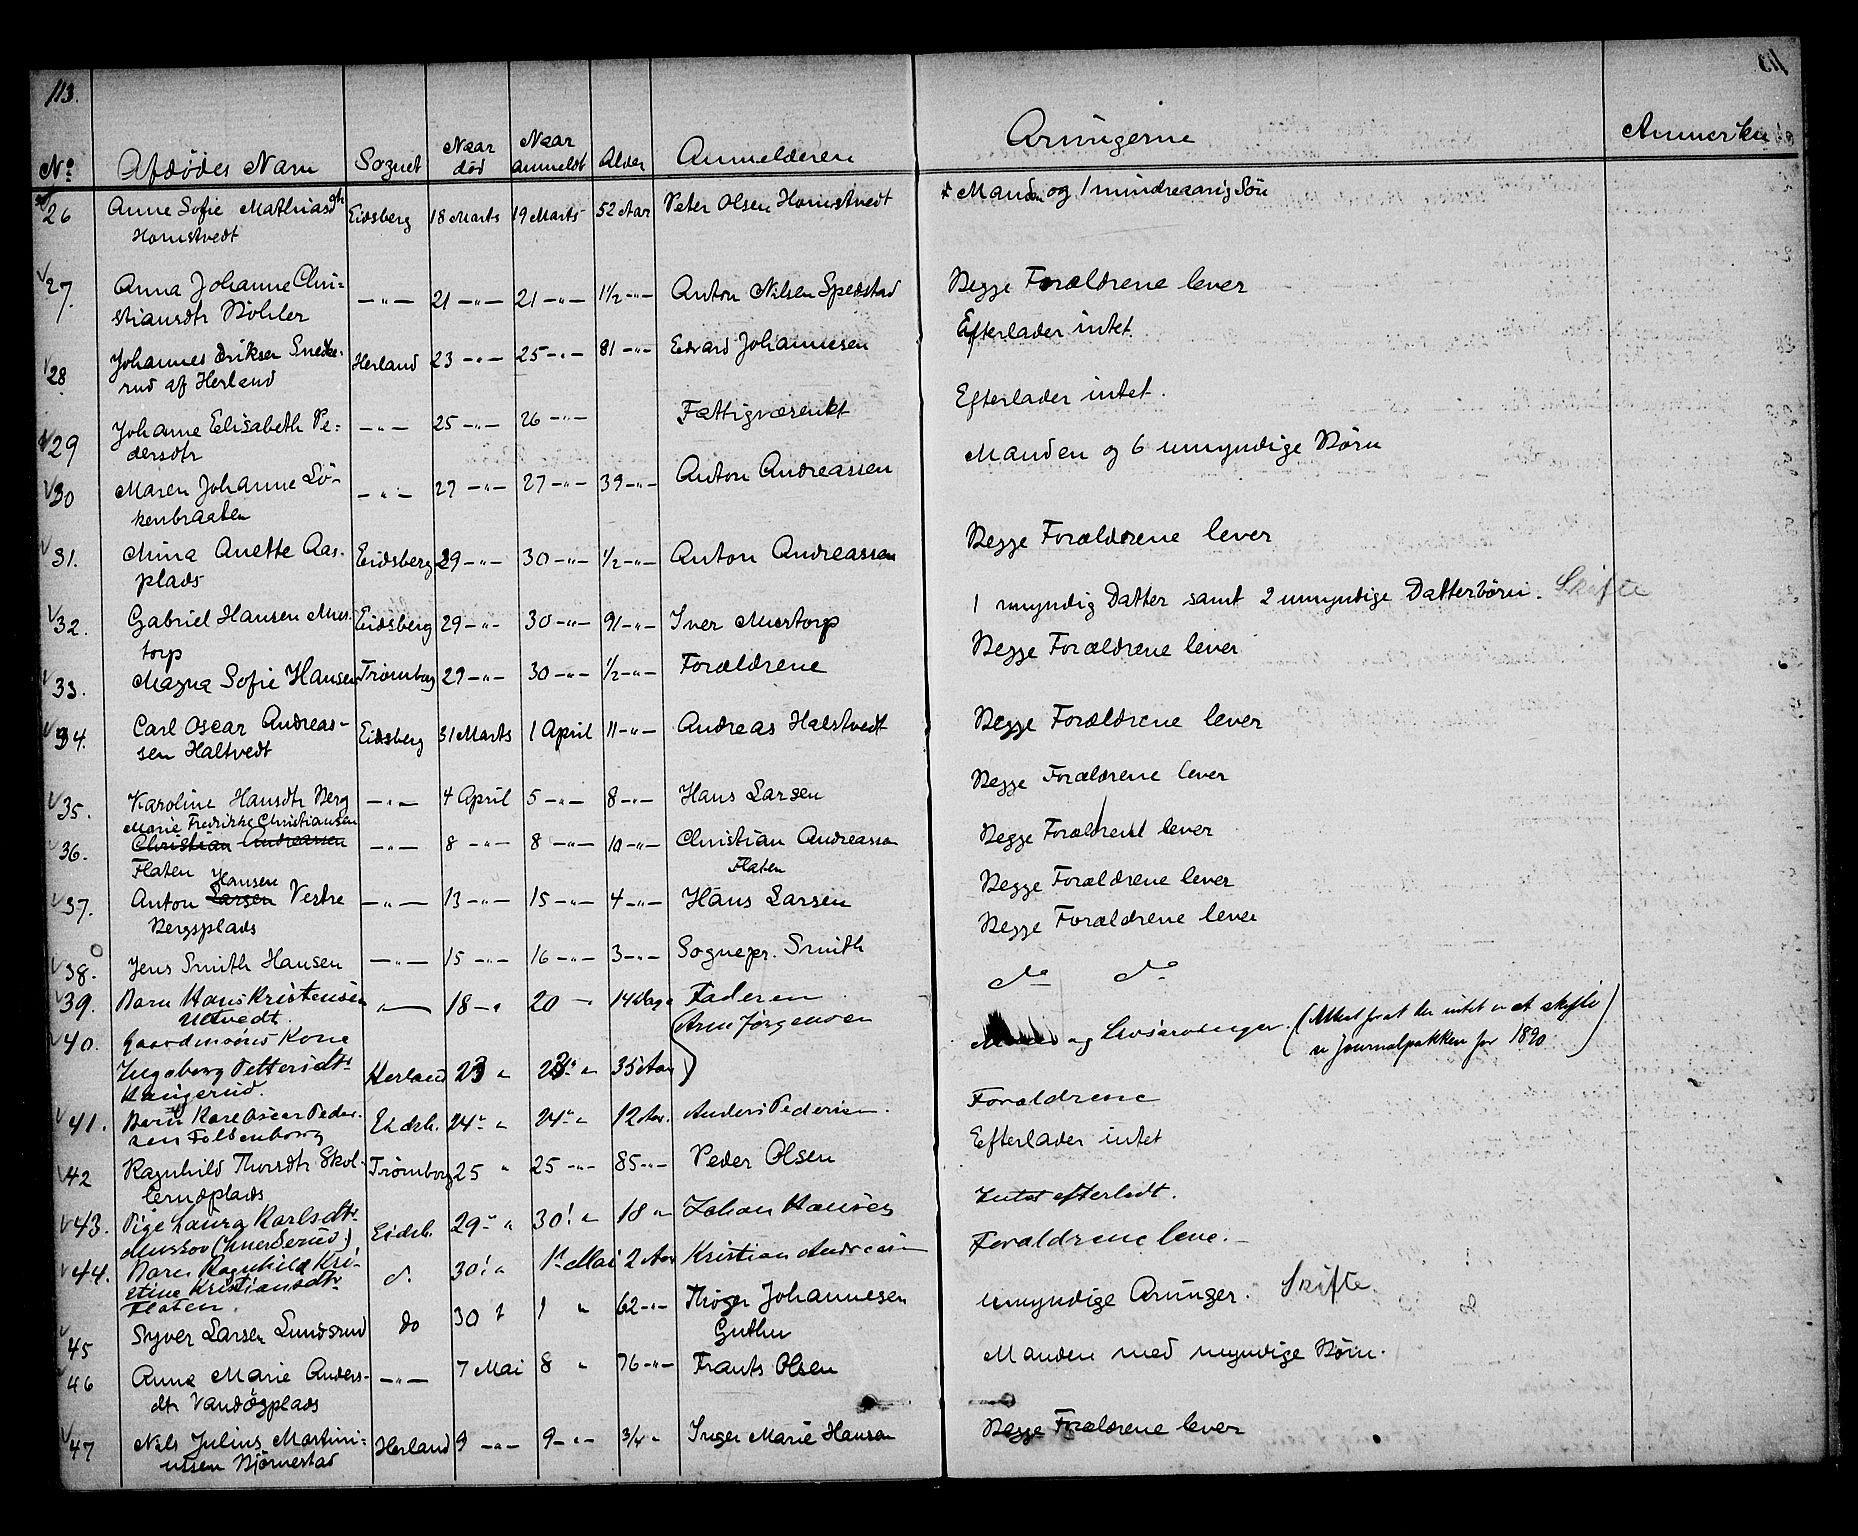 113.
No Afdødes Navn Sognet Naar død Naar anmeldt Alder Anmelderen Arvingerne Anmerkn
26 Anne Sofie Mathiasdtr Eidsberg 18 Marts 19 Marts 52 Aar Peter Olsen Homstvedt Manden og 1 mindreaarig Søn
Homstvedt
27. Anna Johanne Chri= —"— 21 —"— 21 —"— 1½ —"— Anton Nilsen Spedstad Begge Forældrene lever
stiansdtr Böhler
28. Johannes Eriksen Snekke- Herland 23 —"— 25 —"— 81 —"— Edvard Johannesen Efterlader intet.
rud af Herland
29 Johanne Elisabeth Pe= —"— 25 —"— 26 —"— Fattigvæsenet Efterlader intet.
dersdtr
30 Maren Johanne Lö- —"— 27 —"— 27 —"— 39 —"— Anton Andreassen Manden og 6 umyndige Børn
kenbraaten
31. Mina Anette Aas- Eidsberg 29 —"— 30 —"— ½ —"— Anton Andreassen Begge Forældrene lever
plads
32. Gabriel Hansen Mus- Eidsberg 29 —"— 30 —"— 91 —"— Iver Mustorp 1 myndig Datter samt 2 umyndige Datterbörn. Skifte
torp
33. Magna Sofie Hansen Trømborg 29 —"— 30 —"— ½ —"— Forældrene Begge Forældrene lever
34. Carl Oscar Andreas- Eidsberg 31 Marts 1 April 11 —"— Andreas Halstvedt Begge Forældrene lever
sen Haltvedt
35. Karoline Hansdtr Berg —"— 4 April 5 —"— 8 —"— Hans Larsen Begge Forældrene lever
Marie Fredrikke Christiansen
36. Christian Andreassen —"— 8 —"— 8 —"— 10 —"— Christian Andreassen Begge Forældrene lever
Flaten Flaten
Hansen
37. Anton Larsen Vestre —"— 13 —"— 15 —"— 4 —"— Hans Larsen Begge Forældrene lever
Bergsplads
38. Jens Smith Hansen —"— 15 —"— 16 —"— 3 —"— Sognepr. Smith Begge Forældrene lever
39. Barn Hans Kristensen —"— 18 —"— 20 — " 14 Dage Faderen do do
Utvedt.
40. Gaardmands Kone Arne Jørgensen og Livsarvinger. (Attest for at der intet er at skifte
Ingeborg Pettersdtr Herland 23 " 23 " 35 Aar i Journalpakken for 1890)
41. Barn Karl Oscar Peder- Eidsb. 24 " 24 " 12 Aar. Anders Pedersen. Forældrene
sen Folkenborg
42 Ragnhild Thorsdtr Skol- Trømborg 25 " 25 —"— 85 —"— Peder Olsen Efterlader intet
lerudplads
43. Pige Laura Karlsdtr Eidsb. 29 " 30 " 18 " Johan Hansen Intet efterladt.
44. Barn Ragnhild Kri- do 30 " 1 Mai 2 Aar Kristian Andreasen Forældrene leve.
stine Kristiansdtr
Flaten.
45 Syver Larsen Lundsrud do 30 " 1 " 62 —"— Thøger Johannesen umyndige Arvinger. Skifte.
46 Anna Marie Anders- —"— 7 Mai 8 " 76 —"— Frants Olsen Manden med myndige Børn.
dtr Vandøgplads
47 Nils Julius Martini- Herland 9 —"— 9 —"— ¾ " Inger Marie Hansen Begge Forældrene lever
ussen Björnestad